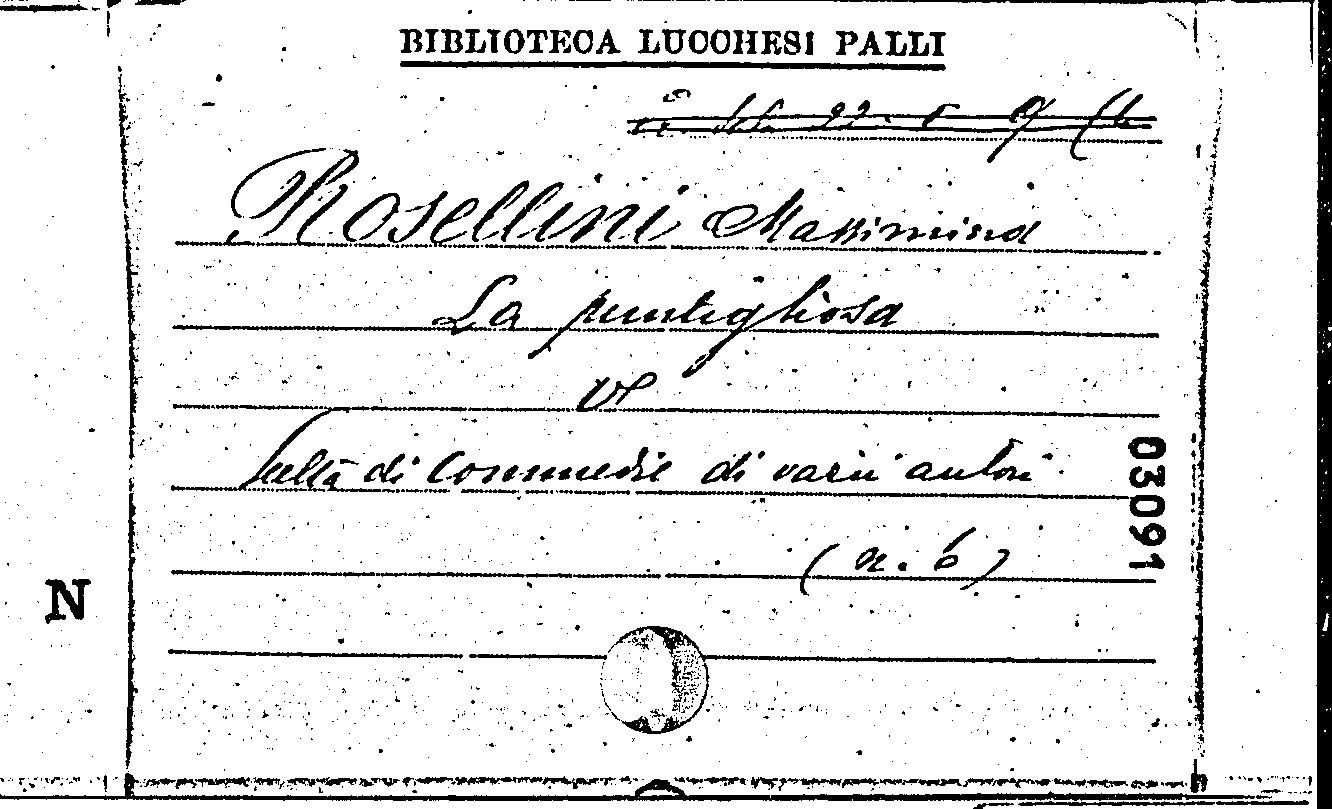 BIBLIOTECA LUCCHESI PALLI
Rosellini Massimina
La puntigliosa
V.
Scelta di Commedie di varii autori.
(n. 6)
03091
N